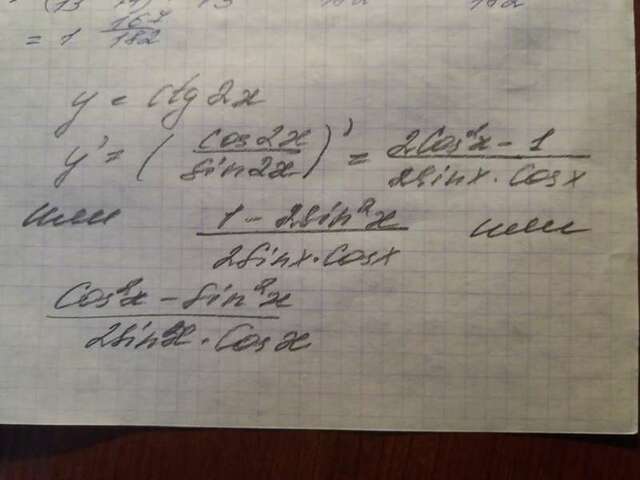 = 1 167/182
y = ctg 2x
y' = (cos2x/sin2x)' = (2cos²x - 1)/(2sinx · cosx)
или (1 - 2sin²x)/(2sinx · cosx) или
(cos²x - sin²x)/(2sinx · cosx)